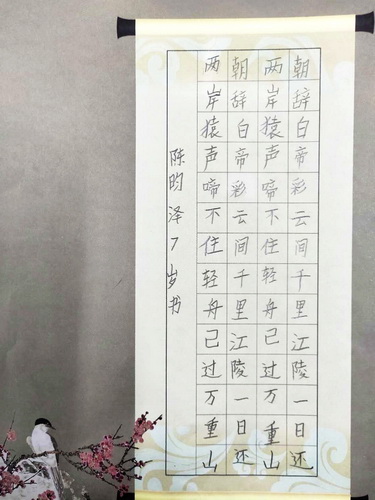 朝辞白帝彩云间千里江陵一日还
两岸猿声啼不住轻舟已过万重山
朝辞白帝彩云间千里江陵一日还
两岸猿声啼不住轻舟已过万重山
陈昀泽7岁书